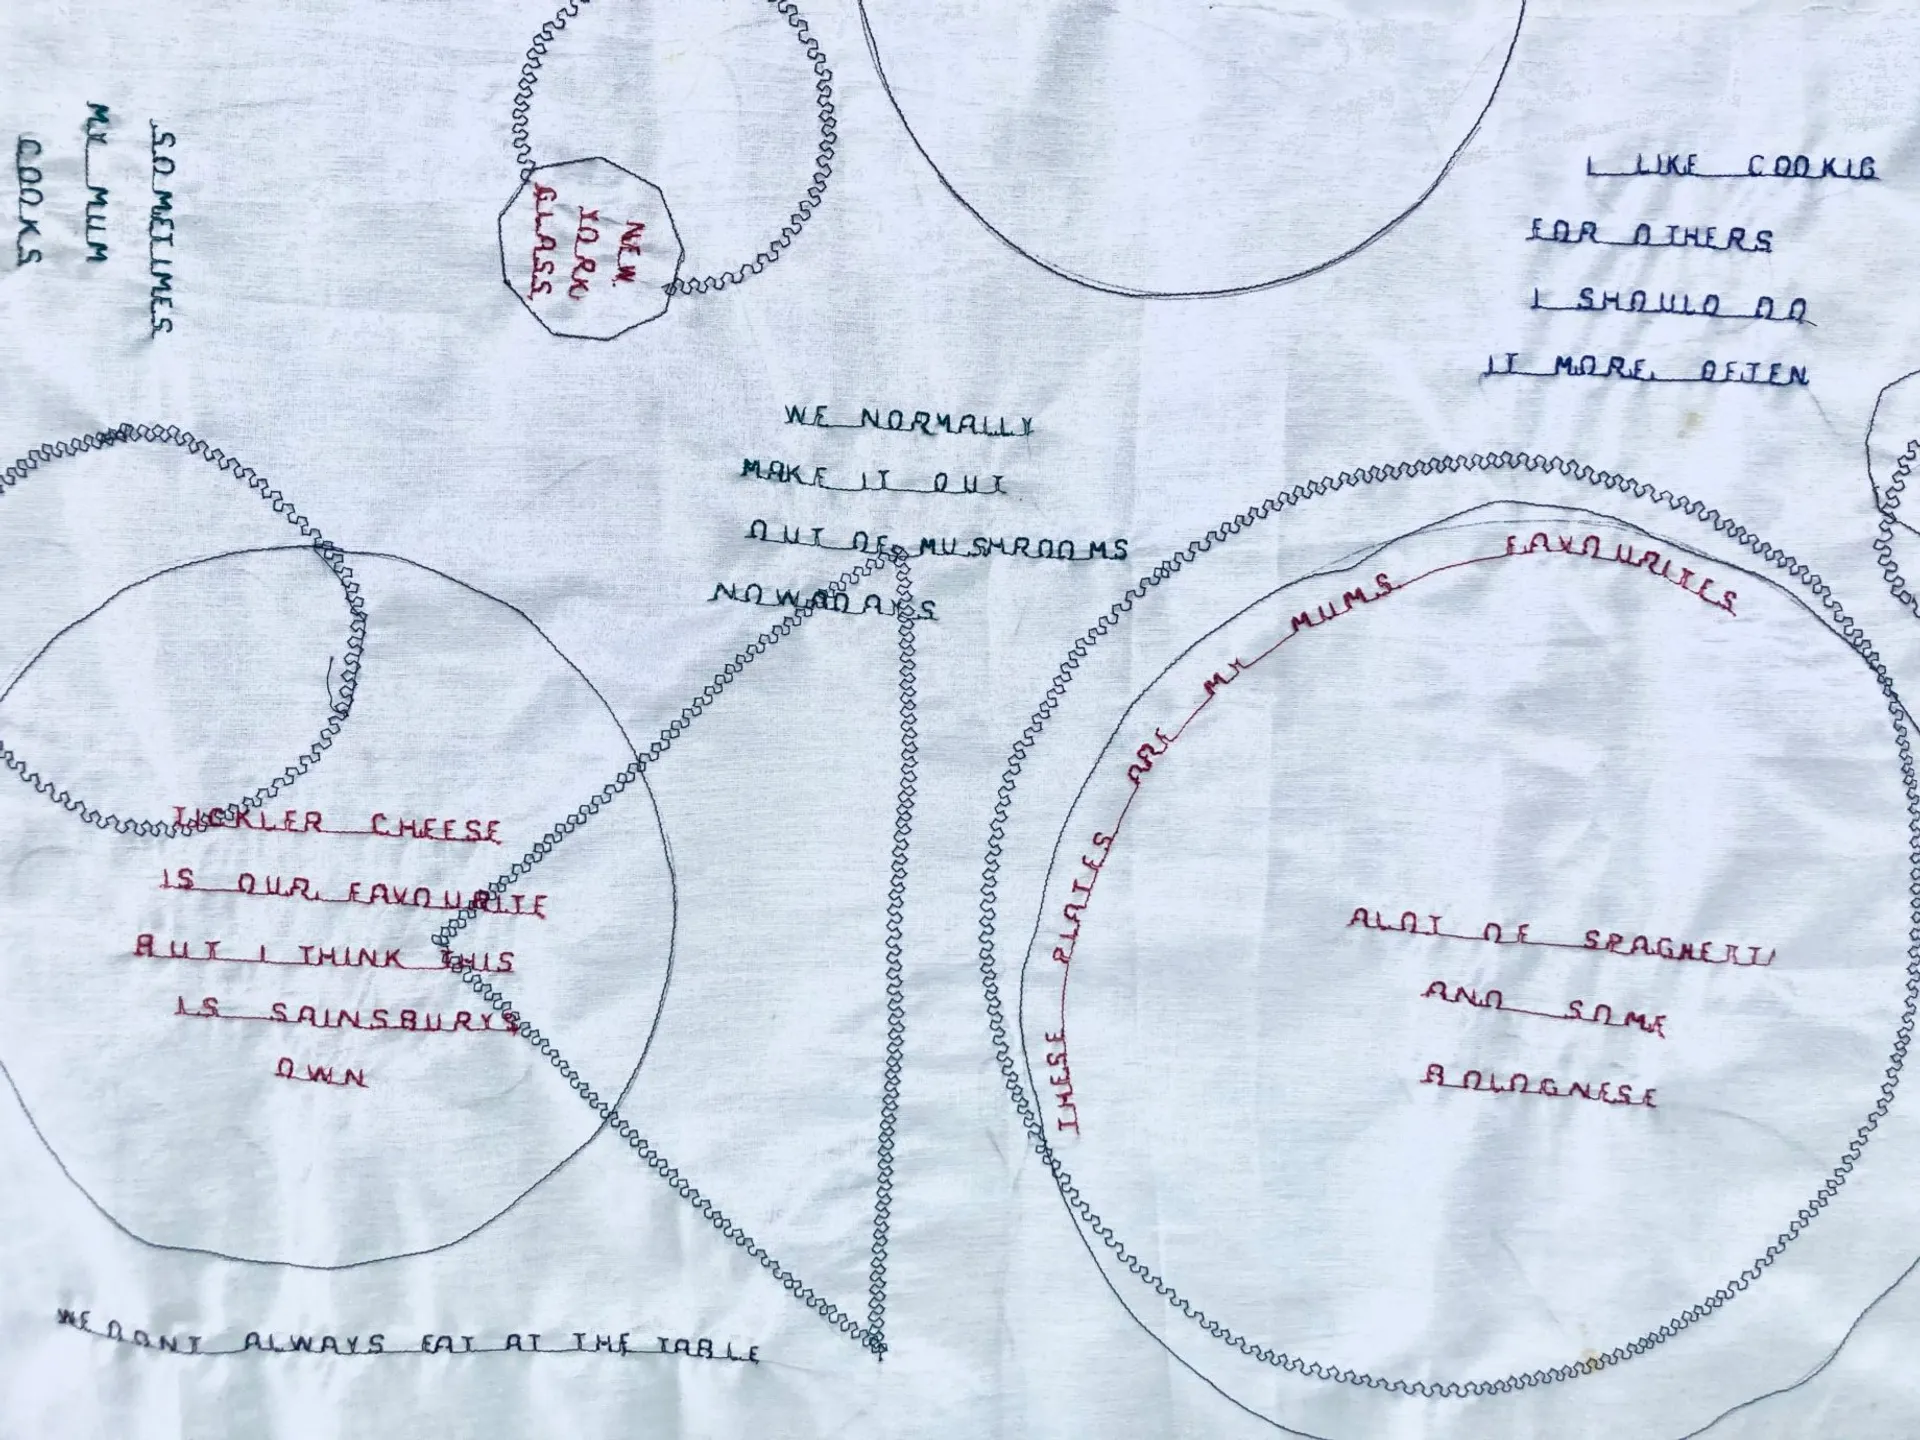 SOMETIMES
MY MUM
COOKS
NEW
YORK
GLASS
I LIKE COOKIG
FOR OTHERS
I SHOULD DO
IT MORE OFTEN
WE NORMALLY
MAKE IT OUT
OUT OF MUSHROOMS
NOWADAYS
THESE PLATES ARE MY MUMS FAVOURITES
TICKLER CHEESE
IS OUR FAVOURITE
BUT I THINK THIS
IS SAINSBURYS
OWN
ALOT OF SPAGHETTI
AND SOME
BOLOGNESE
WE DONT ALWAYS EAT AT THE TABLE